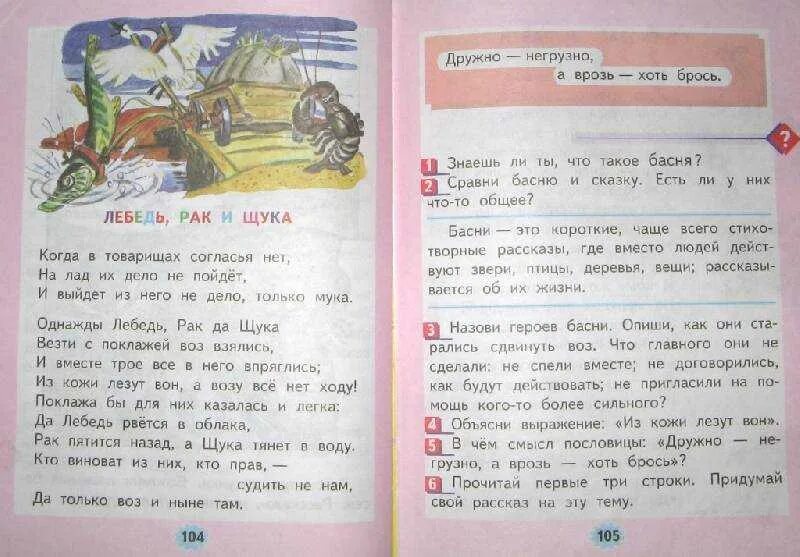 ЛЕБЕДЬ, РАК И ЩУКА
Когда в товарищах согласья нет,
На лад их дело не пойдёт,
И выйдет из него не дело, только мука.
Однажды Лебедь, Рак да Щука
Везти с поклажей воз взялись,
И вместе трое все в него впряглись;
Из кожи лезут вон, а возу всё нет ходу!
Поклажа бы для них казалась и легка:
Да Лебедь рвётся в облака,
Рак пятится назад, а Щука тянет в воду.
Кто виноват из них, кто прав, —
судить не нам,
Да только воз и ныне там.
104
Дружно — негрузно,
а врозь — хоть брось.
?
1 Знаешь ли ты, что такое басня?
2 Сравни басню и сказку. Есть ли у них
что-то общее?
Басни — это короткие, чаще всего стихо-
творные рассказы, где вместо людей дейст-
вуют звери, птицы, деревья, вещи; рассказы-
вается об их жизни.
3 Назови героев басни. Опиши, как они ста-
рались сдвинуть воз. Что главного они не
сделали: не спели вместе; не договорились,
как будут действовать; не пригласили на по-
мощь кого-то более сильного?
4 Объясни выражение: «Из кожи лезут вон».
5 В чём смысл пословицы: «Дружно — не-
грузно, а врозь — хоть брось»?
6 Прочитай первые три строки. Придумай
свой рассказ на эту тему.
105